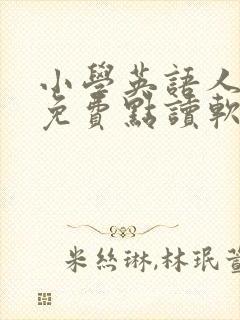 小學英語人
免費點讀軟
米絲琳,林珉萱